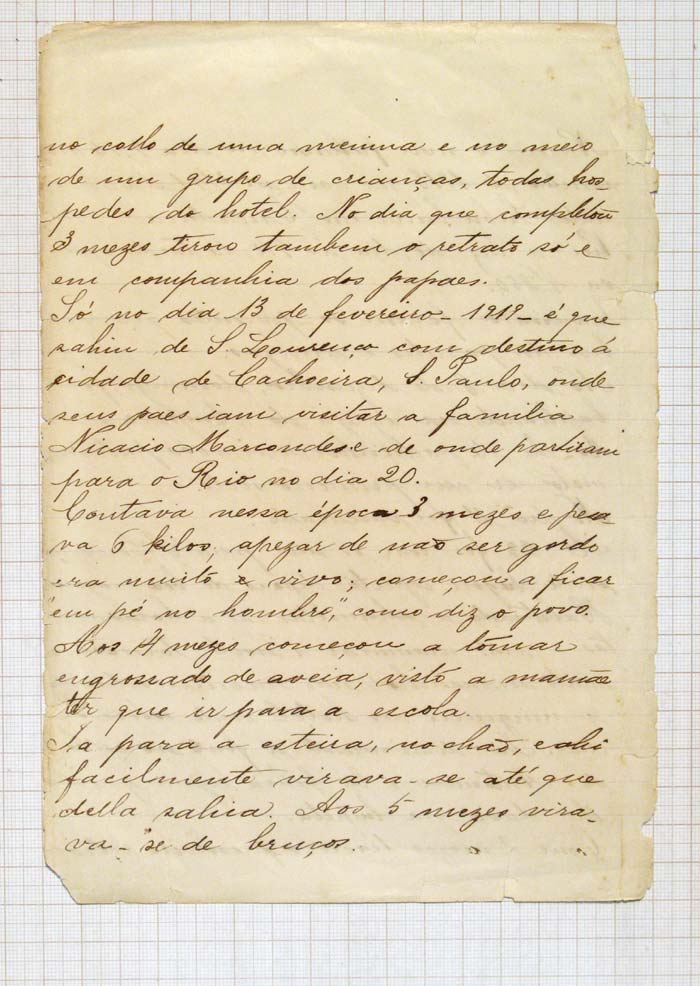 no collo de uma menina e no meio
de um grupo de crianças, todas hos-
pedes do hotel. No dia que completou
3 mezes tirou tambem o retrato só e
em companhia dos papaes.
Só no dia 13 de fevereiro - 1919 - é que
sahiu de S. Lourenço com destino á
cidade de Cachoeira, S. Paulo, onde
seus paes iam visitar a familia
Nicacio Marcondes e de onde partiram
para o Rio no dia 20.
Contava nessa época 3 mezes e pesa
va 6 kilos; apezar de não ser gordo
era muito e vivo; começou a ficar
"em pé no hombro," como diz o povo.
Aos 4 mezes começou a tomar
engrossado de aveia, visto a mamãe
ter que ir para a escola.
Ia para a esteira, no chão, e ahi
facilmente virava-se até que
della sahia. Aos 5 mezes vira-
va-se de bruços.